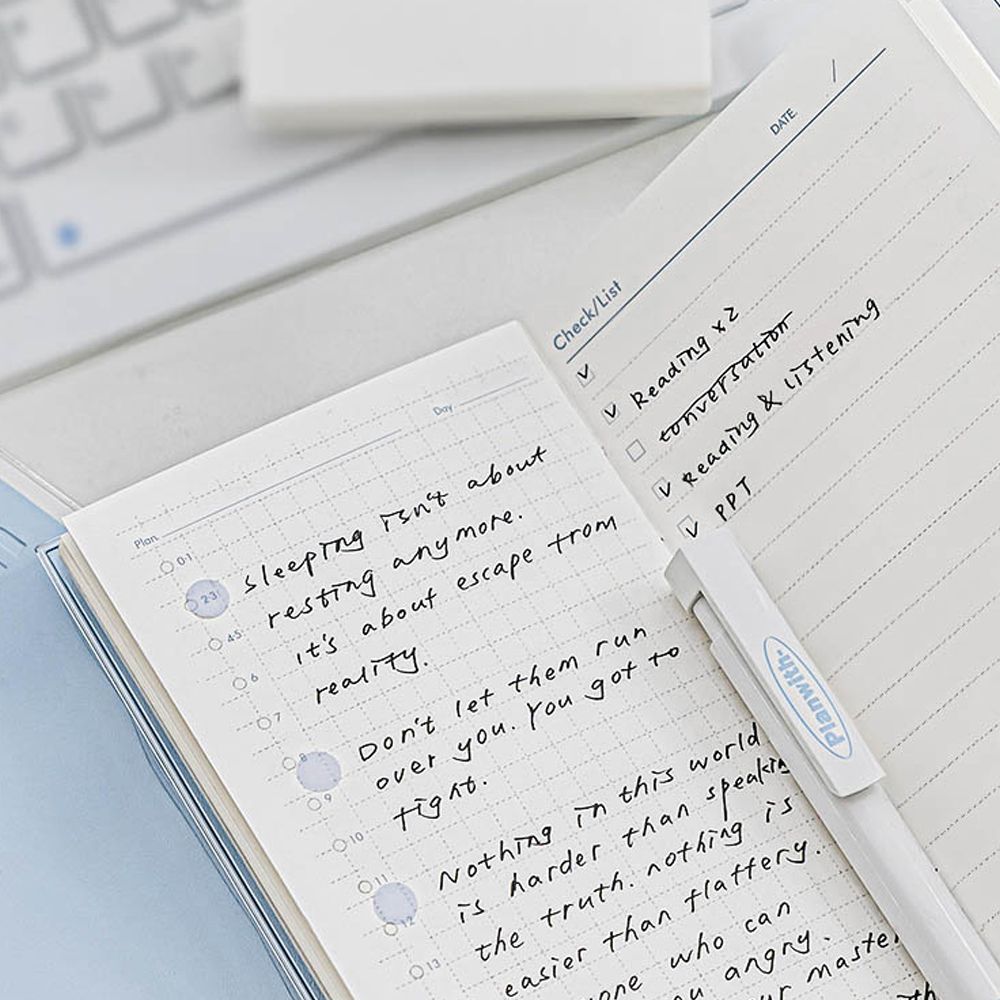 Plan
Day
0·1
2·3
4·5
6
7
8
9
10
11
12
13
sleeping isn't about
resting anymore.
it's about escape from
reality.
Don't let them run
over you. You got to
fight.
Nothing in this world
is harder than speakin
the truth. nothing is
easier than flattery.
one who can
u angry.
ur maste
th
Check/List
DATE. /
Reading x2
conversation
Reading & Listening
PPT
Planwith·